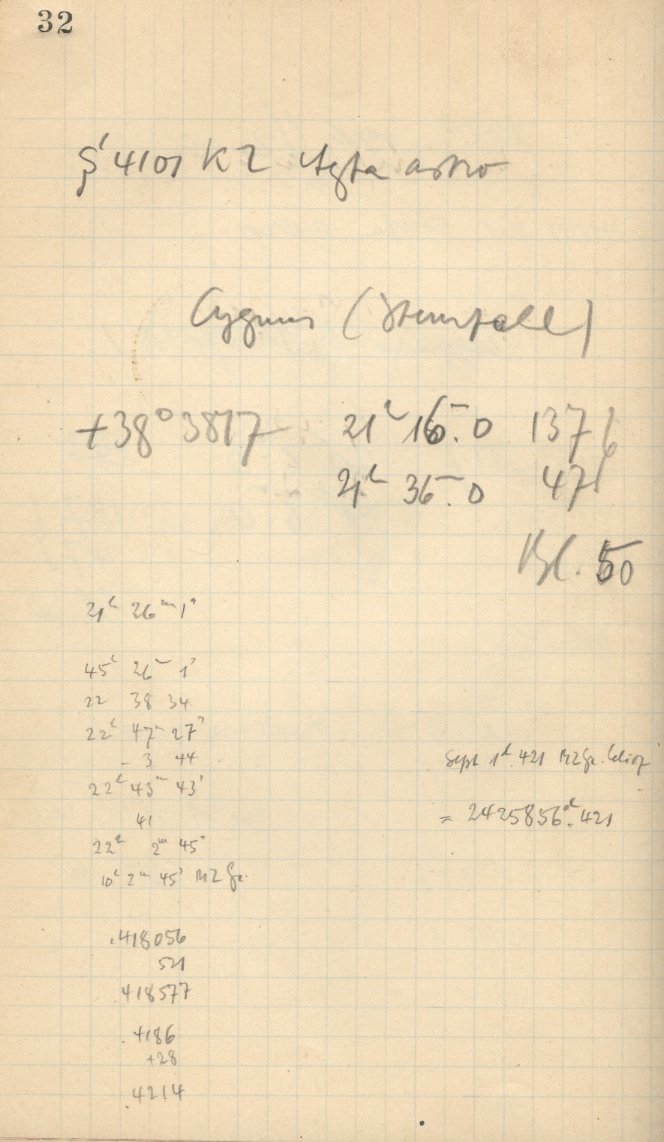 32
4101 K2 Agfa astro
Cygnus (Sternfall)
+38° 3817 21ʰ 16ᵐ.0
21ʰ 36ᵐ.0
Bl. 50
21ʰ 26ᵐ 1ˢ
45ʰ 26ᵐ 1ˢ
22 38 34
22ʰ 47ᵐ 27ˢ
- 3 44
22ʰ 43ᵐ 43ˢ
41
22ʰ 2ᵐ 45ˢ
10ʰ 2ᵐ 45ˢ MZ Gr.
.418056
521
.418577
.4186
+28
.4214
Sept 1ᵈ.421 MZ Gr. helioz
= 2425856ᵈ.421